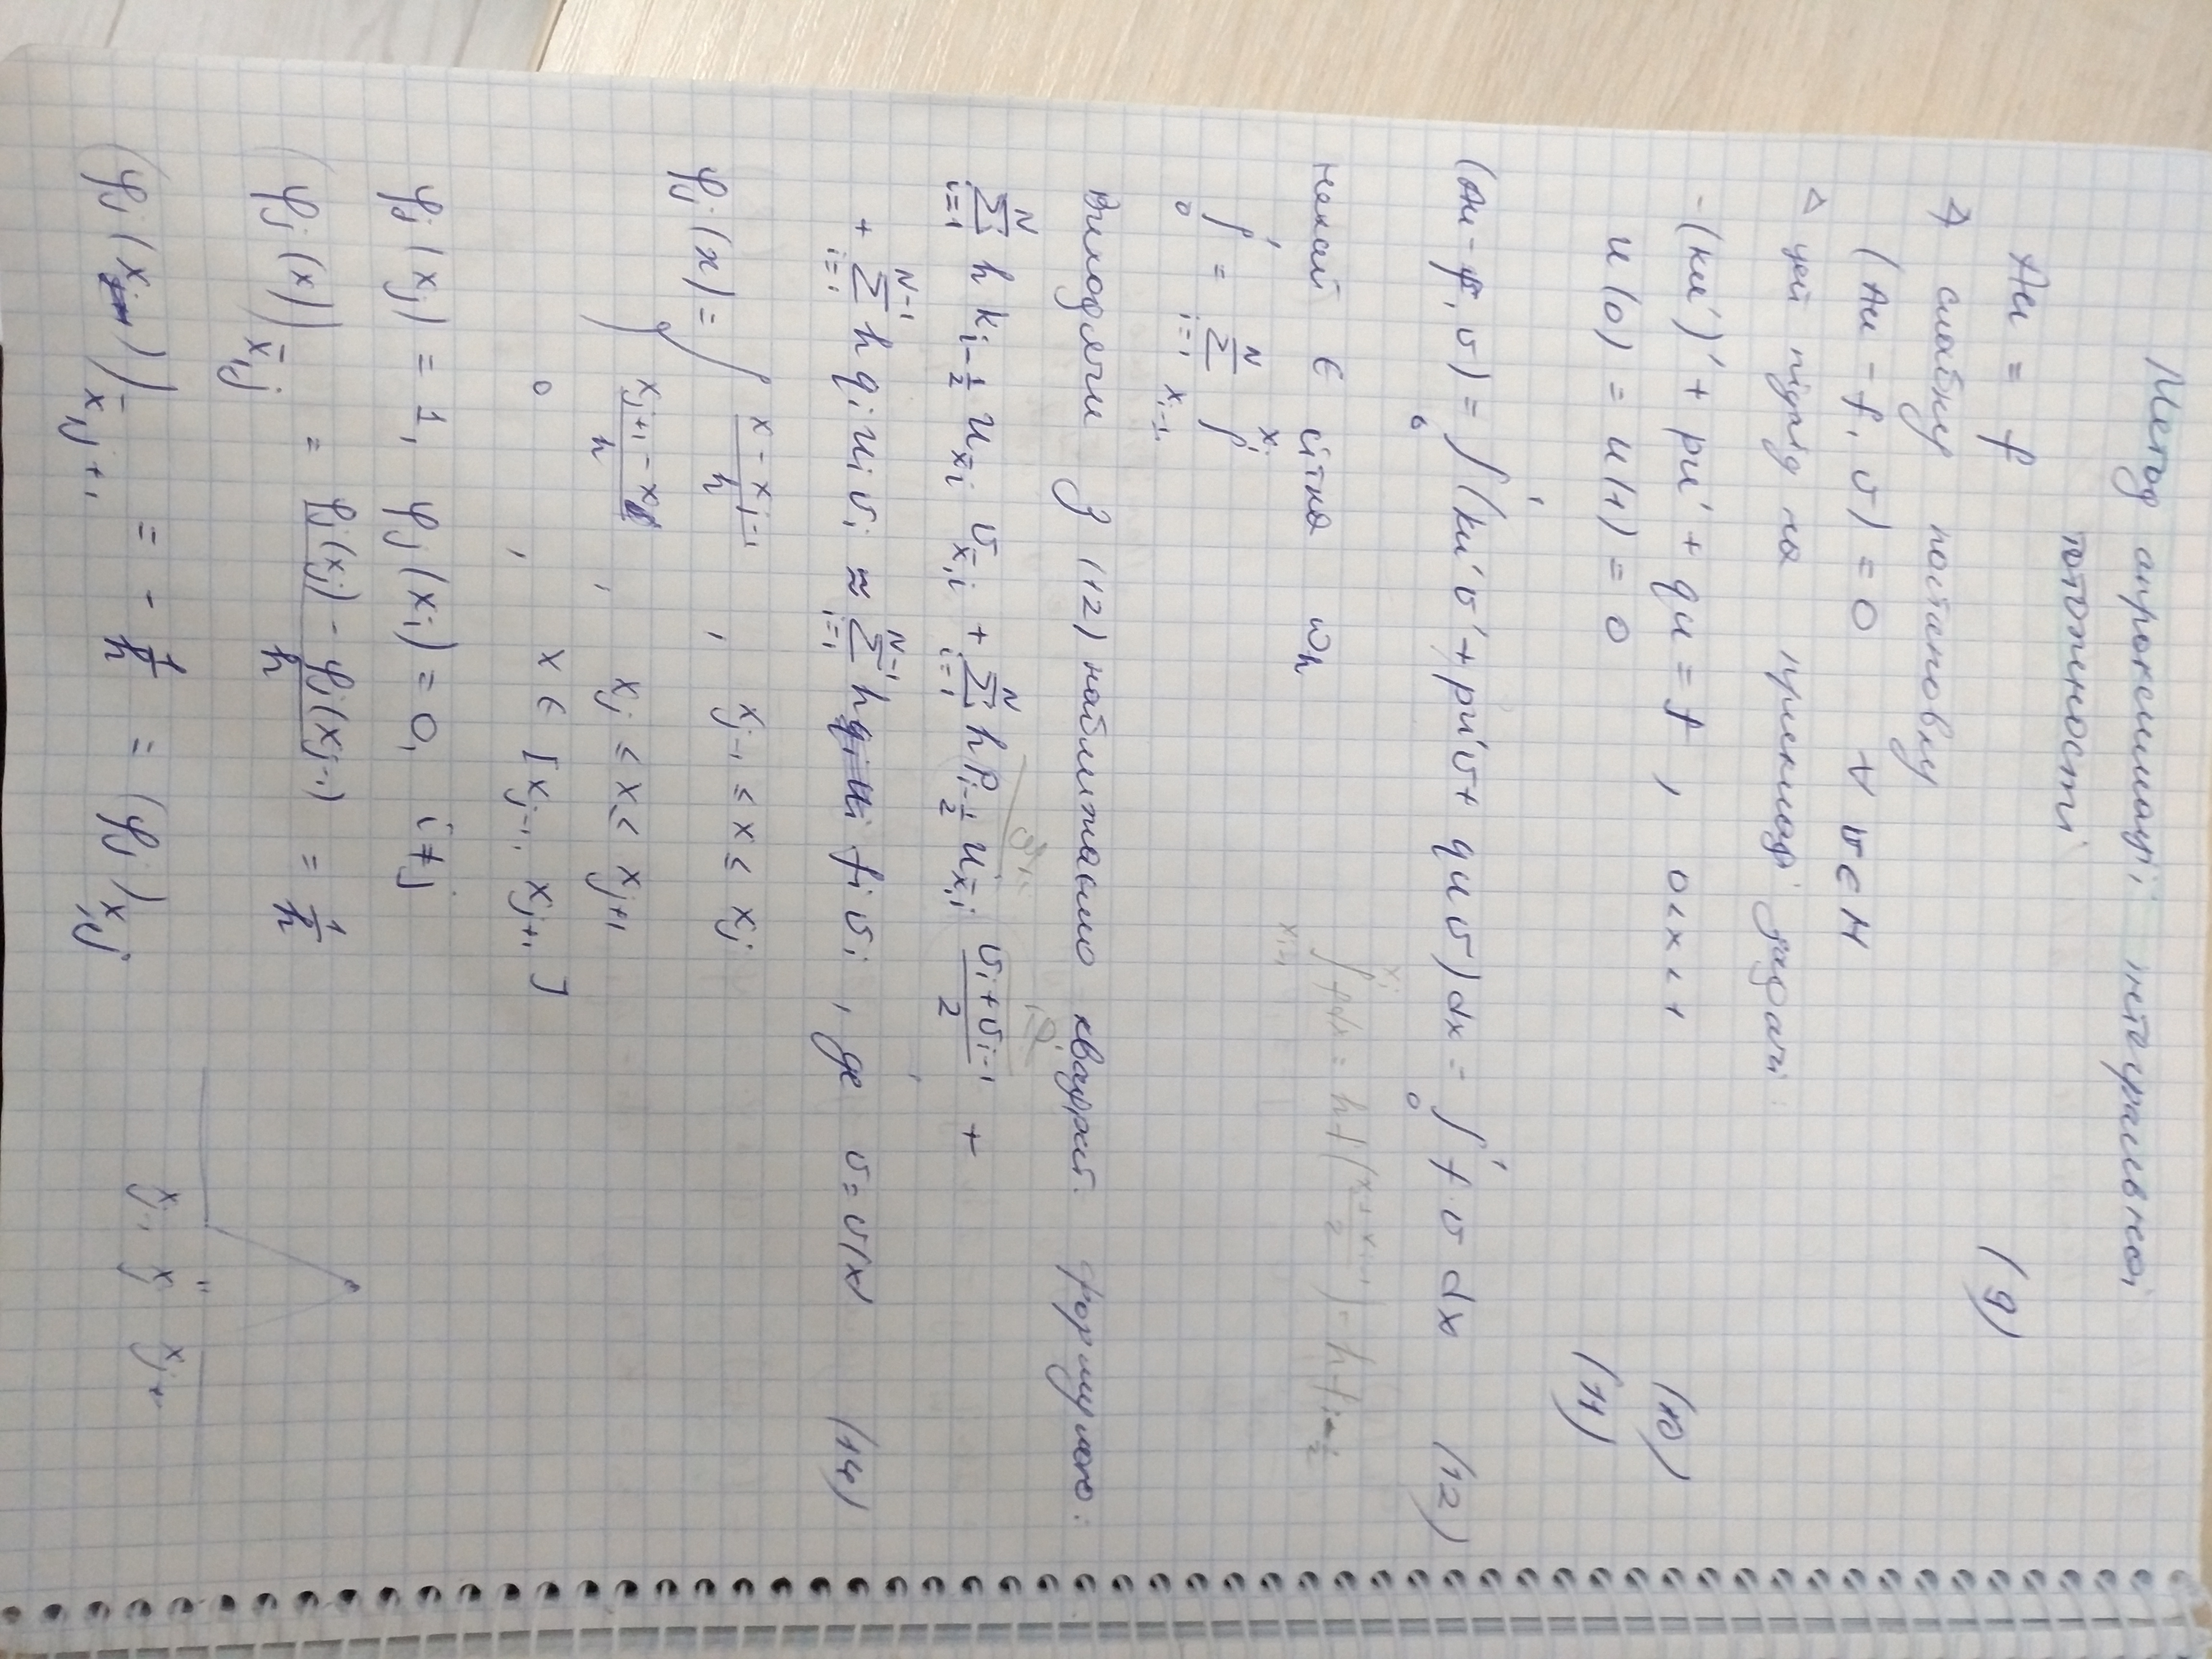 Метод апроксимації інтегральної
тотожності
Au = f (9)
∀ слабку постановку
(Au - f, v) = 0 ∀ v ∈ H
Δ цей підхід на прикладі задачі:
-(ku')' + pu' + qu = f , 0 < x < 1 (10)
u(0) = u(1) = 0 (11)
(Au - f, v) = ∫₀¹ (ku'v' + pu'v + quv) dx = ∫₀¹ f·v dx (12)
нехай є сітка ω_h
∫_{x_{i-1}}^{x_i} f dx = h f((x_i + x_{i-1})/2) = h f_{i-1/2}
∫₀¹ = Σ_{i=1}^{N} ∫_{x_{i-1}}^{x_i}
Виходячи з (12) наближаємо квадрат. формулою:
Σ_{i=1}^{N} h k_{i-1/2} u_{x̄,i} v_{x̄,i} + Σ_{i=1}^{N} h p_{i-1/2} u_{x̄,i} (v_i + v_{i-1})/2 +
+ Σ_{i=1}^{N-1} h q_i u_i v_i ≈ Σ_{i=1}^{N-1} h f_i v_i , де v = v(x) (14)
φ_j(x) = { (x - x_{j-1})/h , x_{j-1} ≤ x ≤ x_j
(x_{j+1} - x)/h , x_j ≤ x ≤ x_{j+1}
0 , x ∈ [x_{j-1}, x_{j+1}]
φ_j(x_j) = 1, φ_j(x_i) = 0, i ≠ j
(φ_j(x))_{x̄,j} = (φ_j(x_j) - φ_j(x_{j-1}))/h = 1/h
(φ_j(x))_{x̄,j+1} = - 1/h = (φ_j)_{x,j}
x_{j-1} x_j x_{j+1}